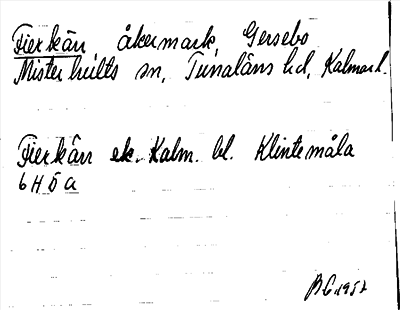 Fierkärr åkermark, Gersebo
Misterhults sn, Tunaläns hd, Kalmar l.
Fierkärr ek. Kalm. bl. Klintemåla
6 H 5 a
BG 1952